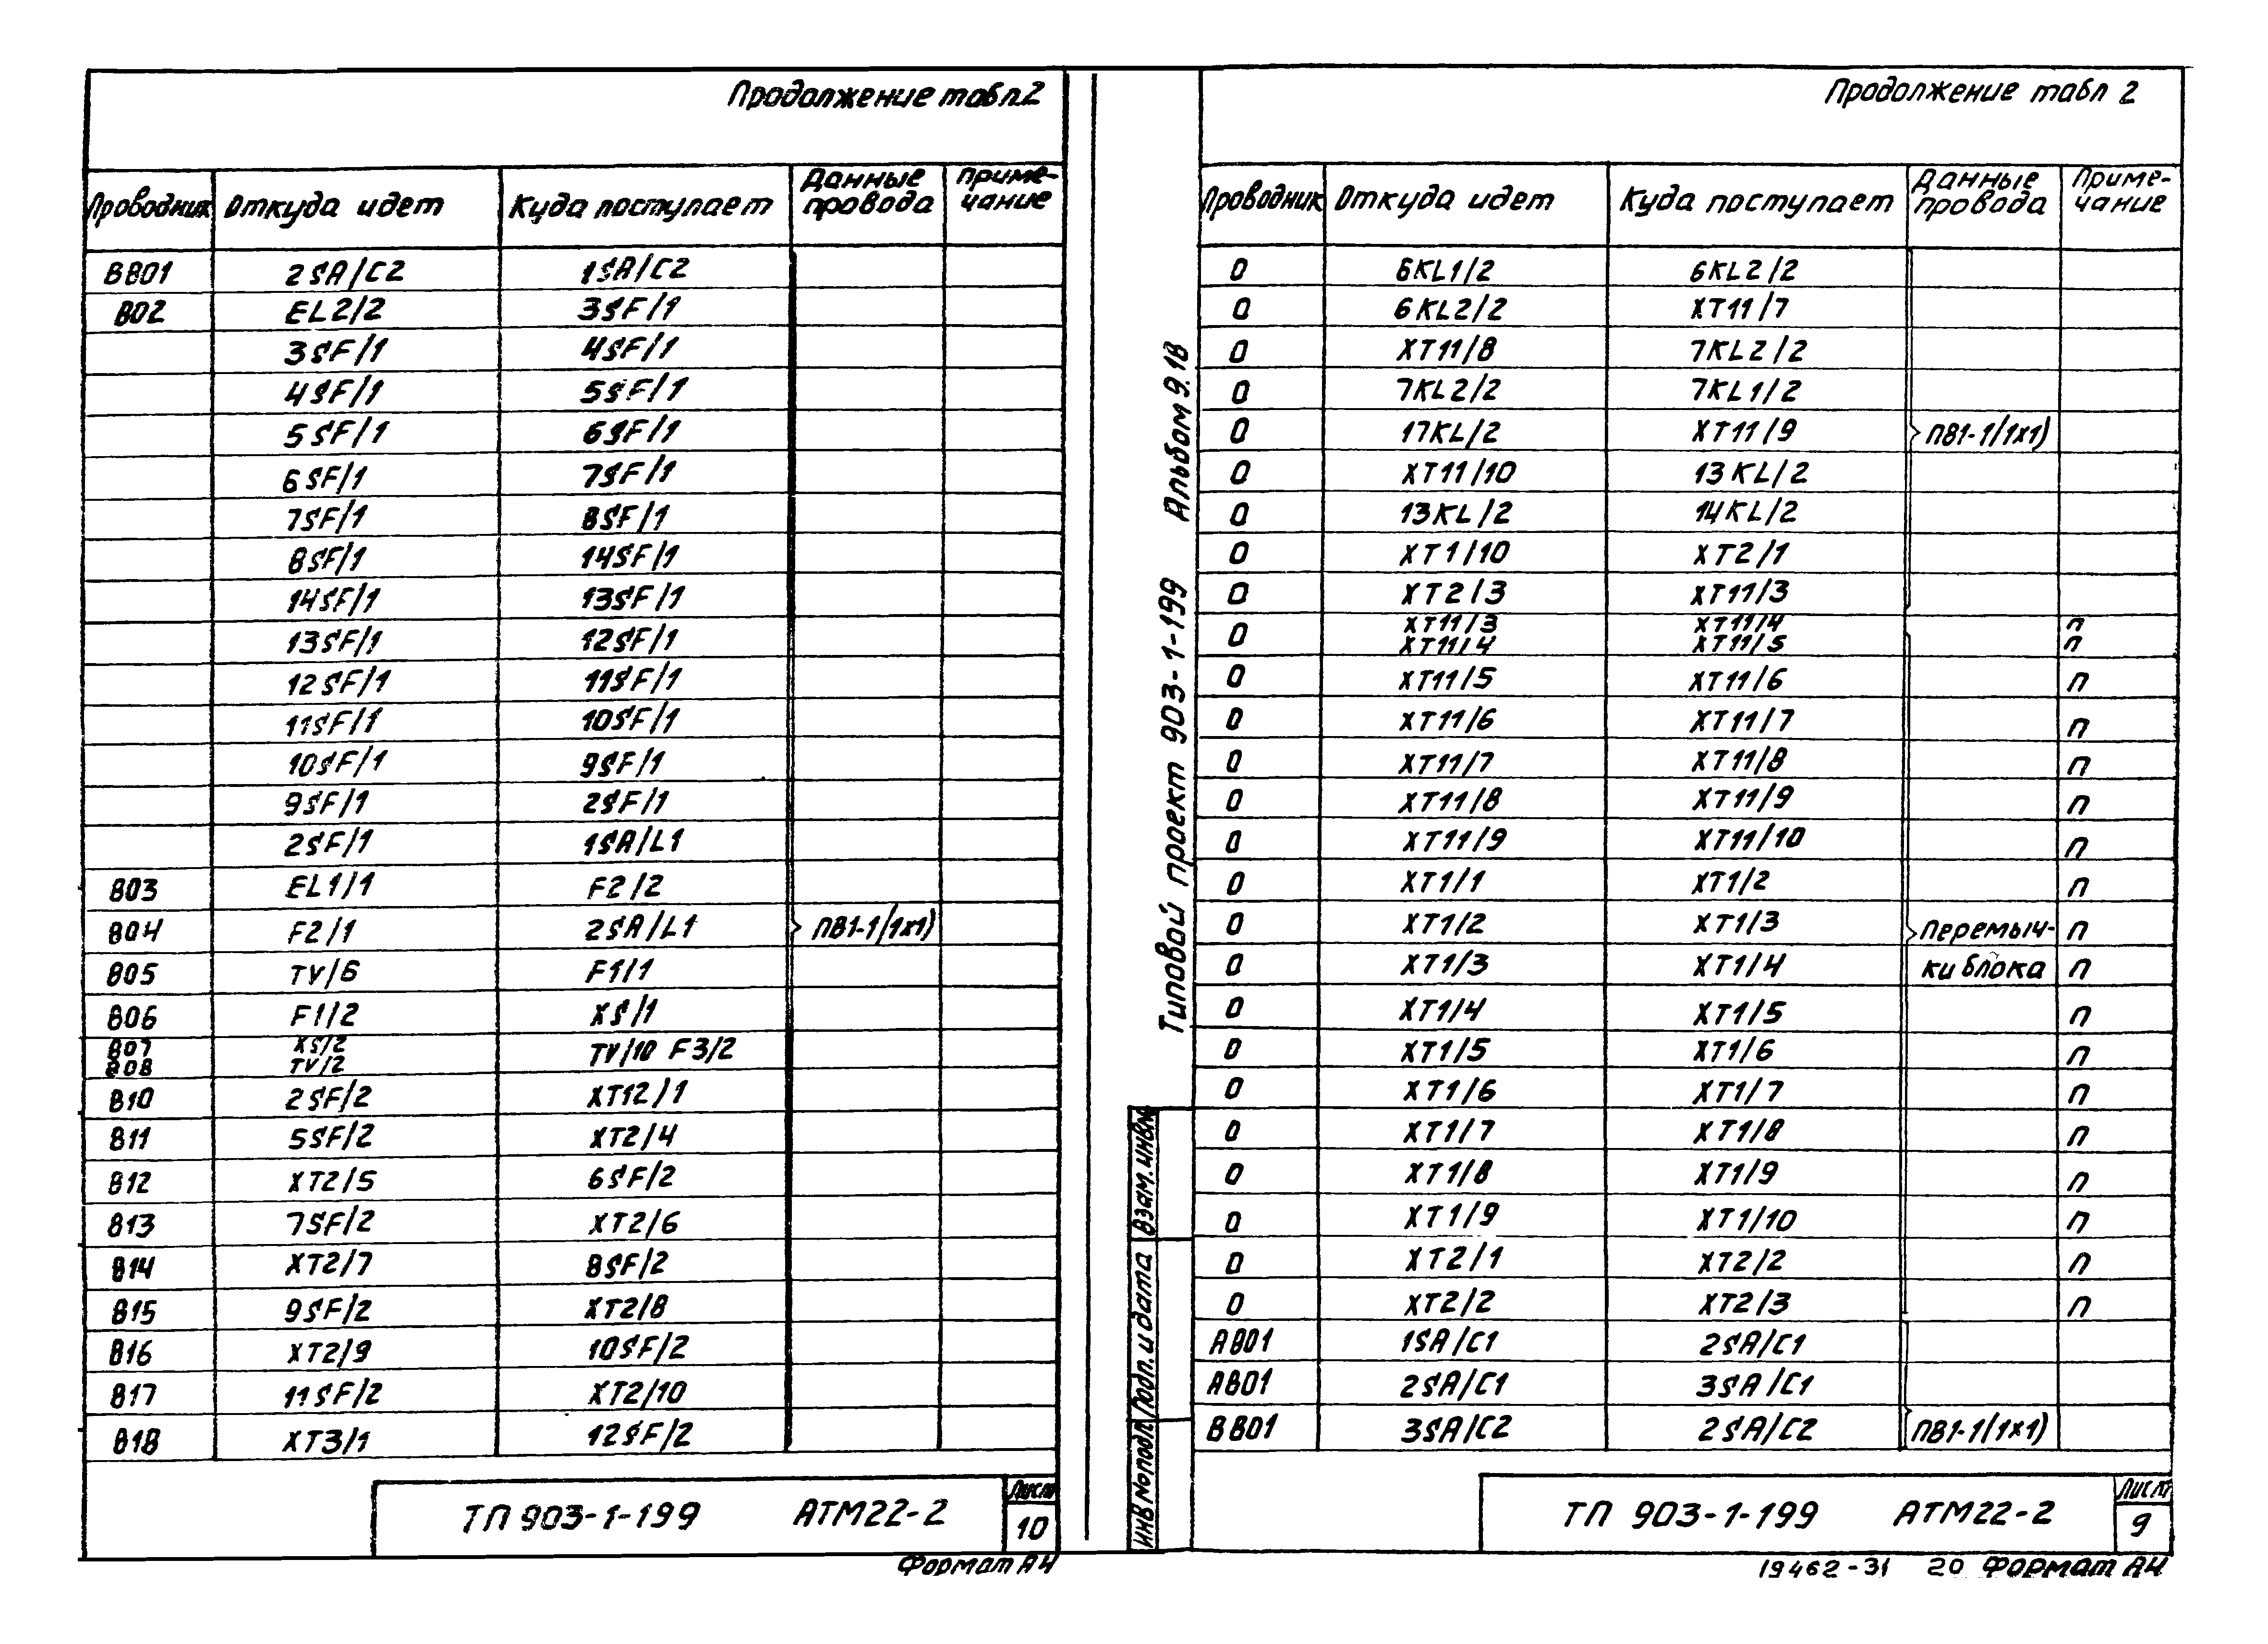 Продолжение табл.2
Проводник Откуда идет Куда поступает Данные провода Приме-чание
В801 2SA/C2 1SA/C2
802 EL2/2 3SF/1
3SF/1 4SF/1
4SF/1 5SF/1
5SF/1 6SF/1
6SF/1 7SF/1
7SF/1 8SF/1
8SF/1 14SF/1
14SF/1 13SF/1
13SF/1 12SF/1
12SF/1 11SF/1
11SF/1 10SF/1
10SF/1 9SF/1
9SF/1 2SF/1
2SF/1 1SA/L1
803 EL1/1 F2/2
804 F2/1 2SA/L1 ПВ1-1/1х1)
805 TV/6 F1/1
806 F1/2 XS/1
807 XS/2 TV/10
808 TV/2 F3/2
810 2SF/2 XT12/1
811 5SF/2 XT2/4
812 XT2/5 6SF/2
813 7SF/2 XT2/6
814 XT2/7 8SF/2
815 9SF/2 XT2/8
816 XT2/9 10SF/2
817 11SF/2 XT2/10
818 XT3/1 12SF/2
ТП 903-1-199 АТМ22-2
Лист
10
Формат А4
Продолжение табл 2
Проводник Откуда идет Куда поступает Данные провода Приме-чание
0 6KL1/2 6KL2/2
0 6KL2/2 XT11/7
0 XT11/8 7KL2/2
0 7KL2/2 7KL1/2
0 17KL/2 XT11/9 ПВ1-1/1х1)
0 XT11/10 13KL/2
0 13KL/2 14KL/2
0 XT1/10 XT2/1
0 XT2/3 XT11/3
0 XT11/3 XT11/4 п
XT11/4 XT11/5 п
0 XT11/5 XT11/6 п
0 XT11/6 XT11/7 п
0 XT11/7 XT11/8 п
0 XT11/8 XT11/9 п
0 XT11/9 XT11/10 п
0 XT1/1 XT1/2 п
0 XT1/2 XT1/3 Перемыч- п
0 XT1/3 XT1/4 ки блока п
0 XT1/4 XT1/5 п
0 XT1/5 XT1/6 п
0 XT1/6 XT1/7 п
0 XT1/7 XT1/8 п
0 XT1/8 XT1/9 п
0 XT1/9 XT1/10 п
0 XT2/1 XT2/2 п
0 XT2/2 XT2/3 п
А801 1SA/C1 2SA/C1
А801 2SA/C1 3SA/C1
В801 3SA/C2 2SA/C2 ПВ1-1/1х1)
Типовой проект 903-1-199 Альбом 9.18
Инв №подл. Подп. и дата Взам. инв№
ТП 903-1-199 АТМ22-2
Лист
9
19462-31 20 Формат А4